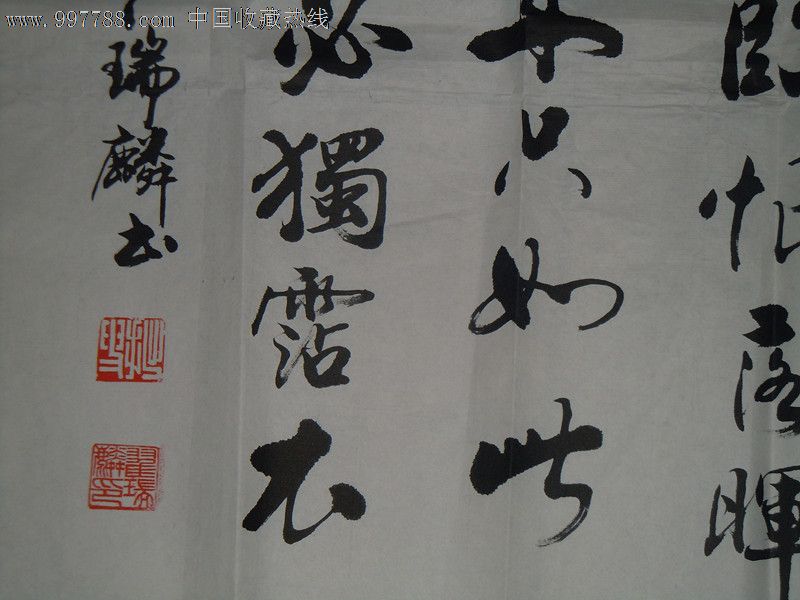 www.997788.com 中国收藏热线
臨恨落暉
只如此
必獨霑衣
瑞麟书